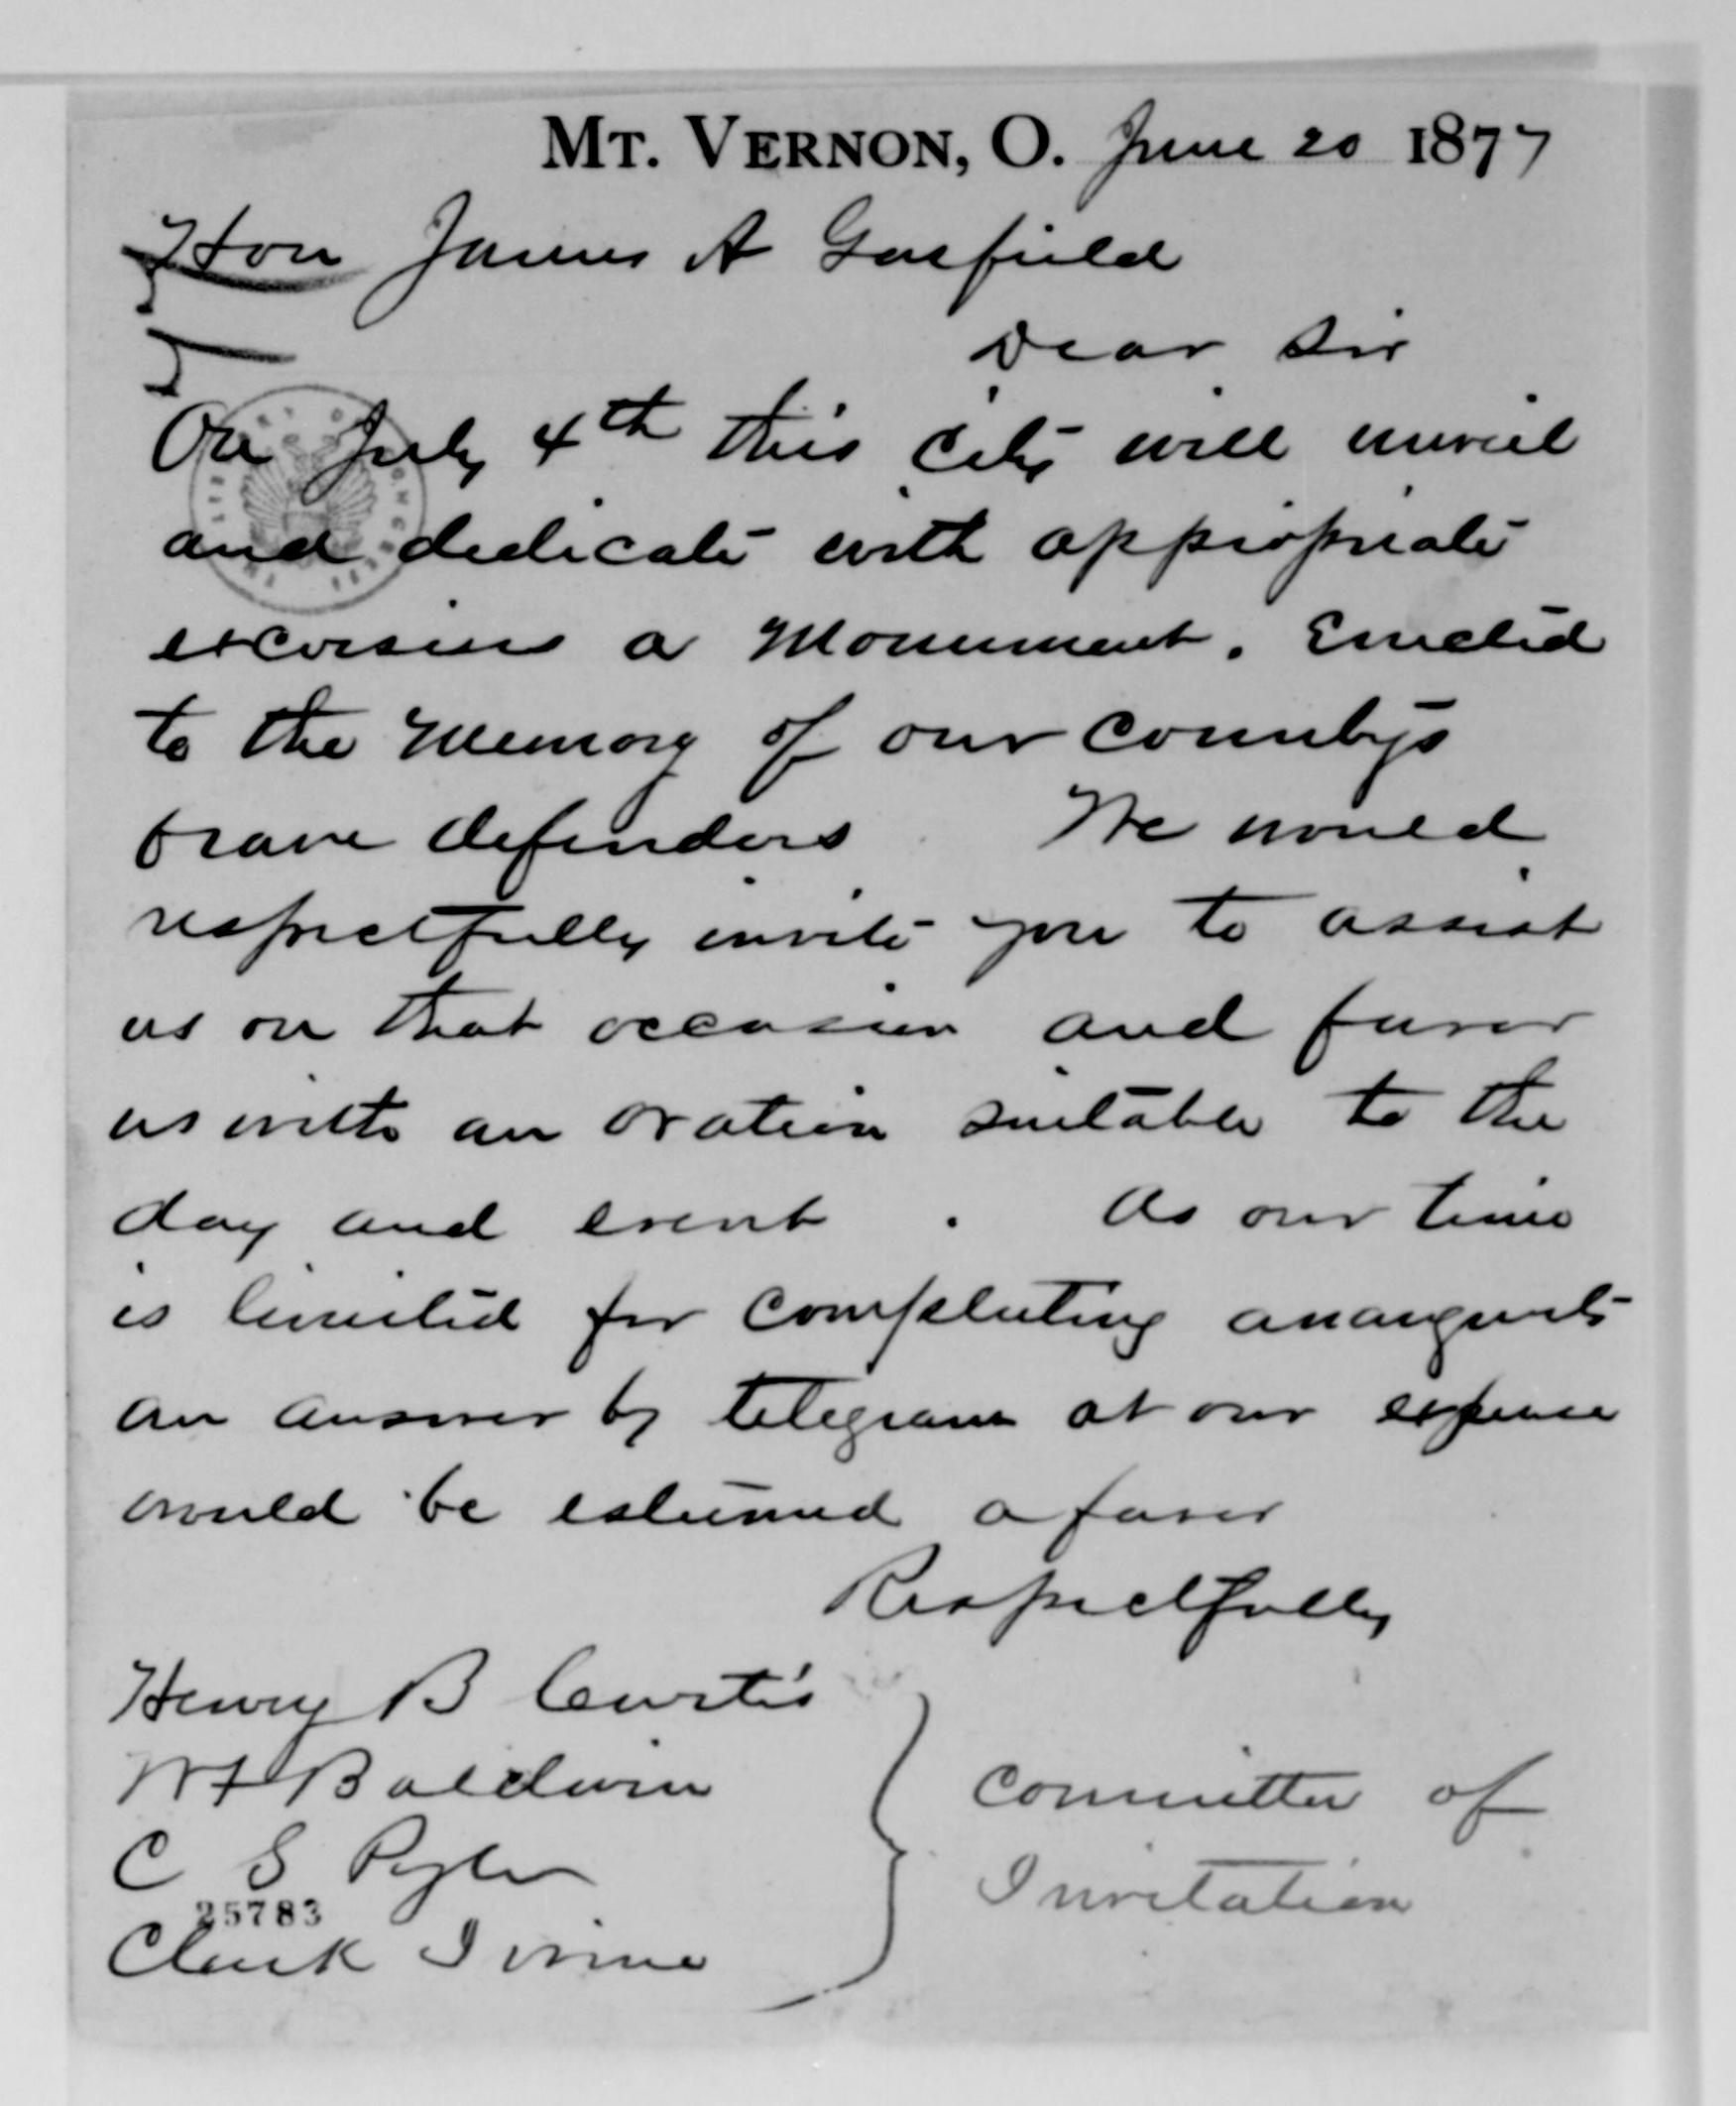 MT. VERNON, O. June 20 1877
Hon James A Garfield
Dear Sir
On July 4th this City will unveil
and dedicate with appropriate
excersises a Monument. Errected
to the Memory of our Countys
brave defenders We would
respectfully invite you to assist
us on that occasion and favor
us with an oration suitable to the
day and event. As our time
is limited for completing
an answer by telegram at our expense
would be esteemed a favor
Respectfully
Henry B Curtis
Baldwin
C S Pyle
25783
Clark Irvine
Committee of
Invitation